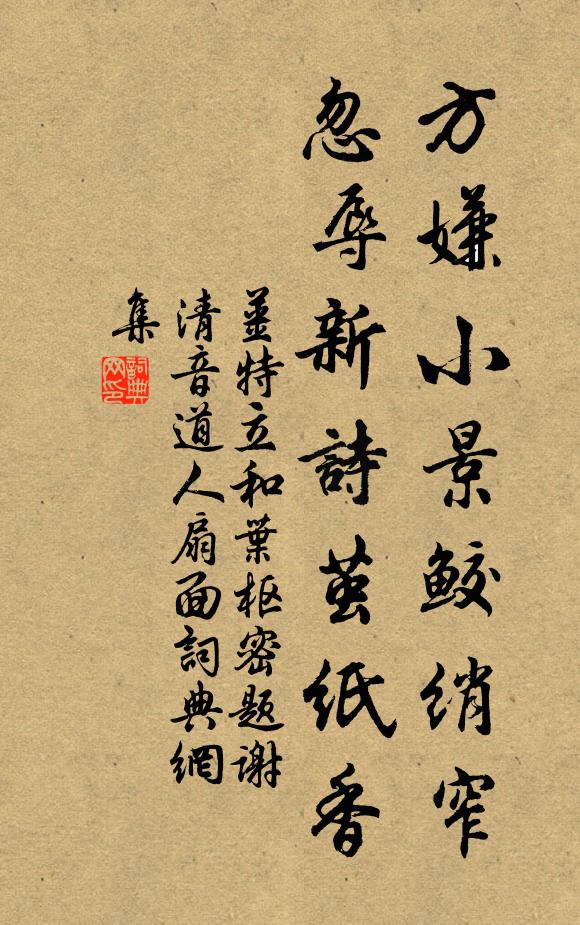 方嫌小景鲛绡窄
忽辱新詩茧纸香
姜特立和葉枢密题謝
清音道人扇面詞典網
集
詞典
网印